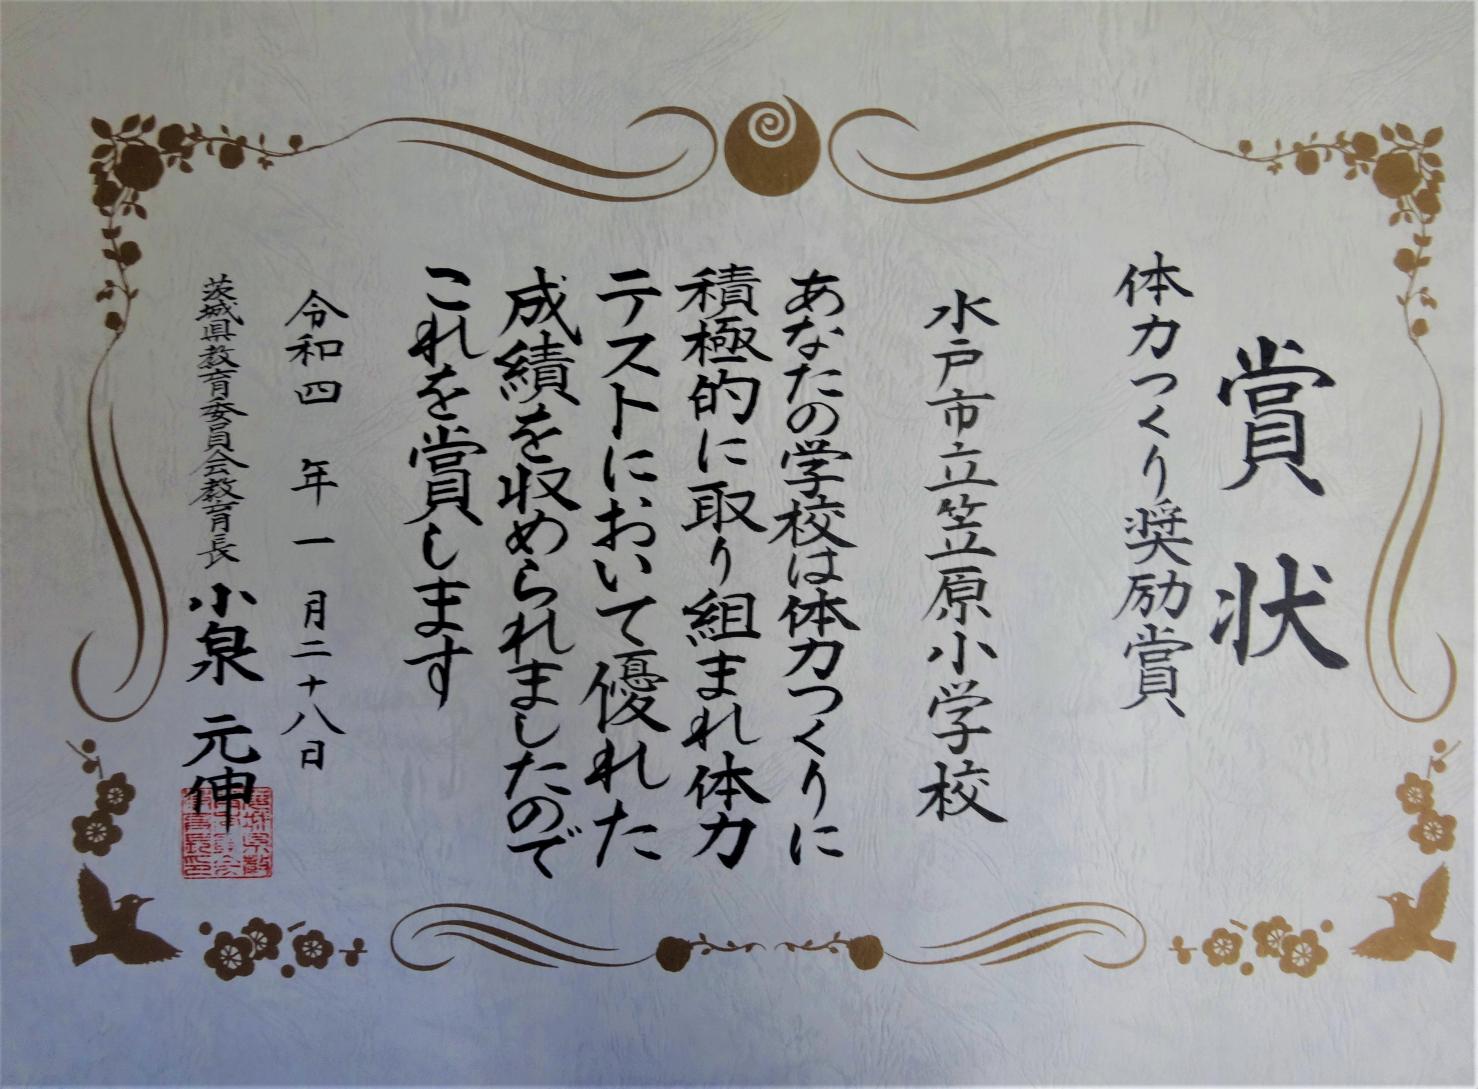 賞状
体力つくり奨励賞
水戸市立笠原小学校
あなたの学校は体力つくりに
積極的に取り組まれ体力
テストにおいて優れた
成績を収められましたので
これを賞します
令和四年一月二十八日
茨城県教育委員会教育長 小泉 元伸